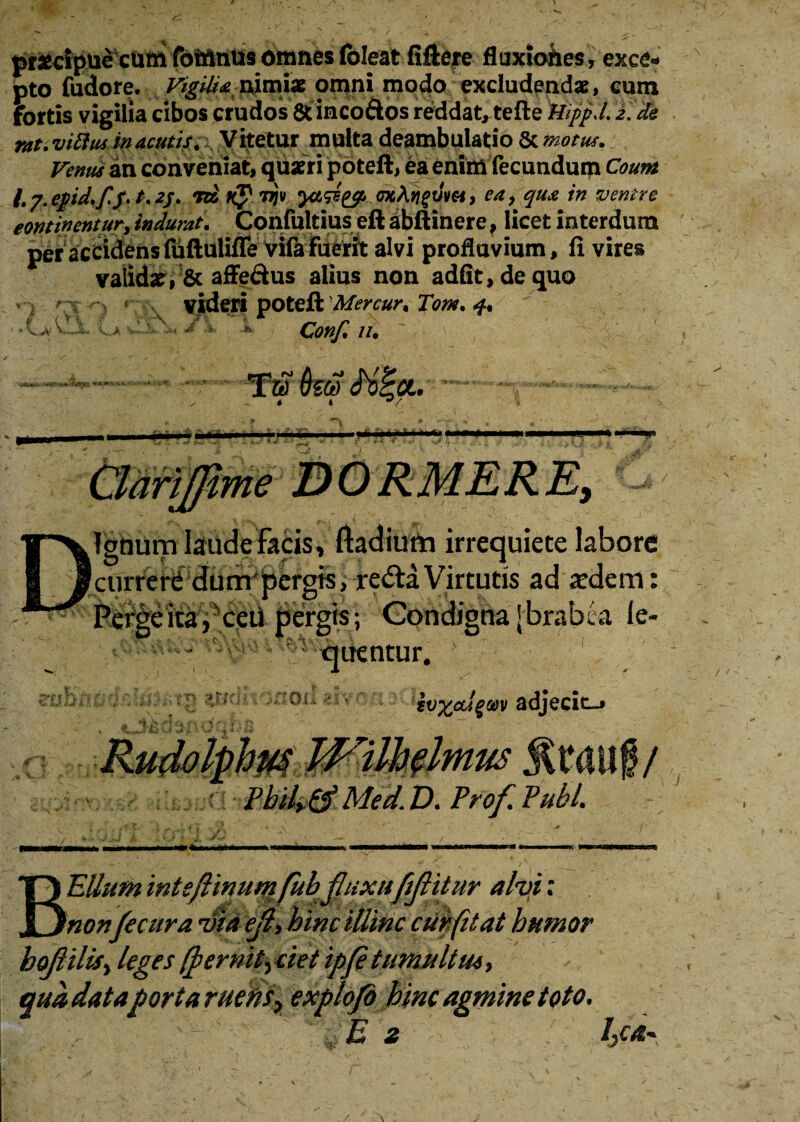 præcipuè cum somnus omnes soleat sistere fluxiones, exce-
pto sudore. Vigiliæ nimiæ omni modo excludendæ, cum
fortis vigilia cibos crudos & incoctos reddat, teste Hipp. l. 2. de
rat. victus in acutis. Vitetur multa deambulatio & motus.
Venus an conveniat, quæri potest, ea enim secundum Coum
l. 7. epid. s. 5. t. 25. τὰ κατὰ τὴν γαστέρα σκληρύνει, ea, quæ in ventre
continentur, indurat. Consultius est abstinere, licet interdum
per accidens sustulisse visa fuerit alvi profluvium, si vires
validæ, & affectus alius non adsit, de quo
videri potest Mercur. Tom. 4.
Cons. 11.
Τῷ θεῷ δόξα.
Clarissime DORMERE,
DIgnum laude facis, stadium irrequiete labore
currere dum pergis, rectà Virtutis ad ædem:
Perge ita, ceu pergis; Condigna brabéa se-
quentur.
ἐυχαίρων adjecit
Rudolphus Wilhelmus Krauß/
Phil. & Med. D. Prof. Publ.
BEllum intestinum sub fluxu sistitur alvi:
non secura via est, hinc illinc cursitat humor
hostilis, leges spernit, ciet ipse tumultus,
quà data porta ruens, exploso hinc agmine toto.
E 2
Ica-